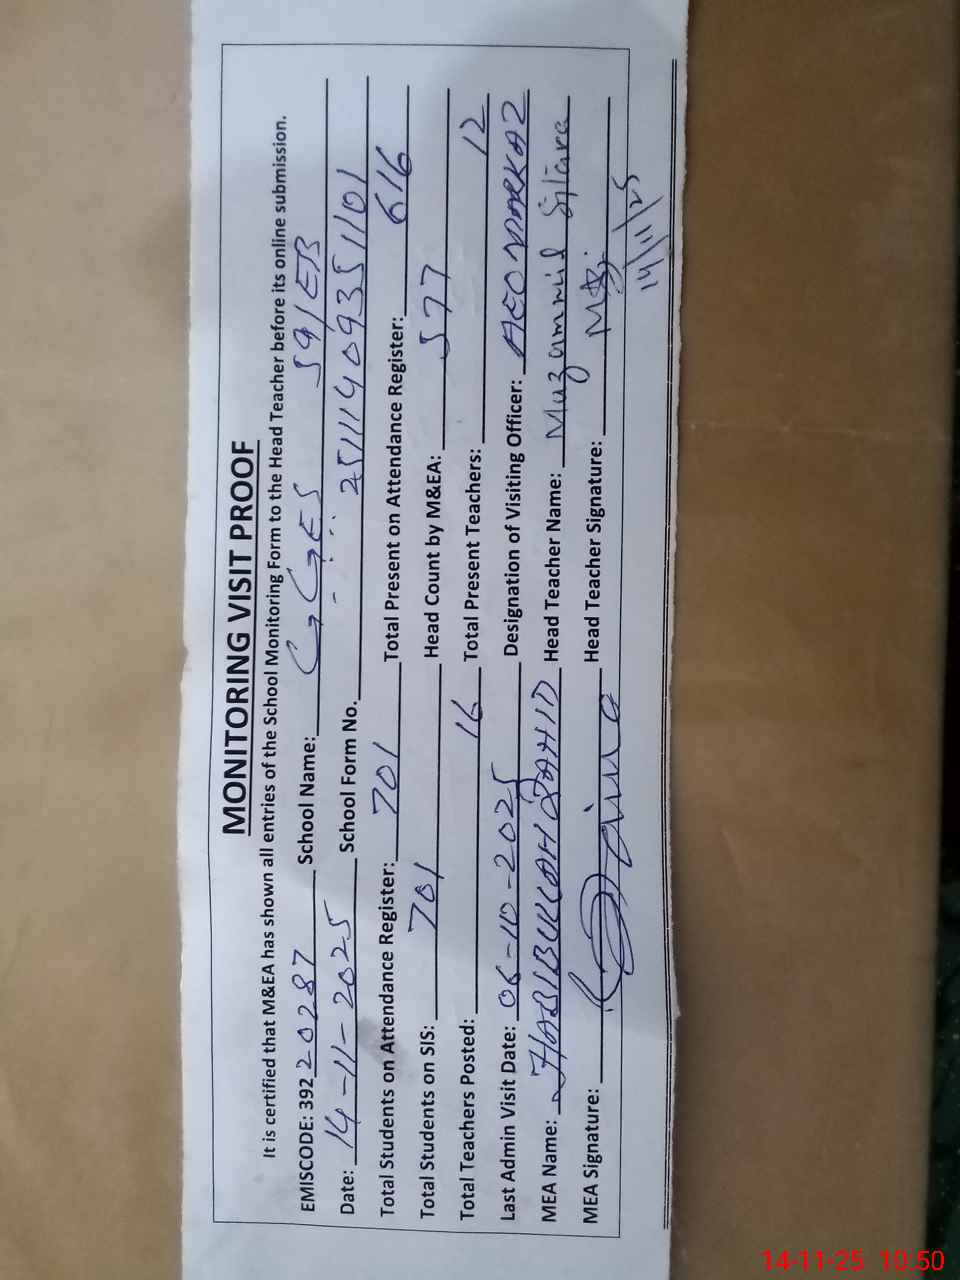 MONITORING VISIT PROOF
It is certified that M&EA has shown all entries of the School Monitoring Form to the Head Teacher before its online submission.
EMISCODE: 39220287 School Name: GGES 59/EB
Date: 14-11-2025 School Form No. 25111409351101
Total Students on Attendance Register: 701 Total Present on Attendance Register: 616
Total Students on SIS: 701 Head Count by M&EA: 577
Total Teachers Posted: 16 Total Present Teachers: 12
Last Admin Visit Date: 06-10-2025 Designation of Visiting Officer: AEO MARKAZ
MEA Name: HABIBULLAH ZAHID Head Teacher Name: Muzammil Sitara
MEA Signature: Head Teacher Signature:
14/11/25
14-11-25 10:50